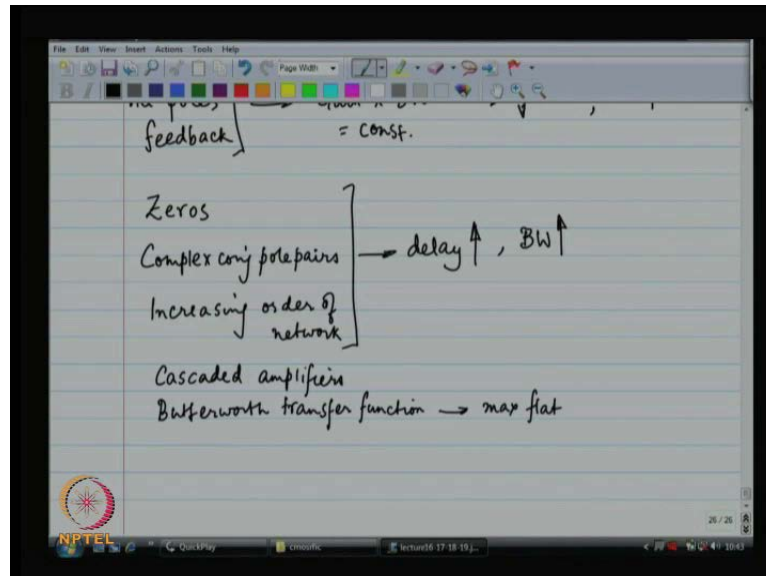 File Edit View Insert Actions Tools Help
Page Width
feedback
= const.
Zeros
Complex conj pole pairs → delay ↑, BW ↑
Increasing order of
network
Cascaded amplifiers
Butterworth transfer function → max flat
26 / 26
NPTEL
QuickPlay cmosrfic lecture16-17-18-19.j... 10:43